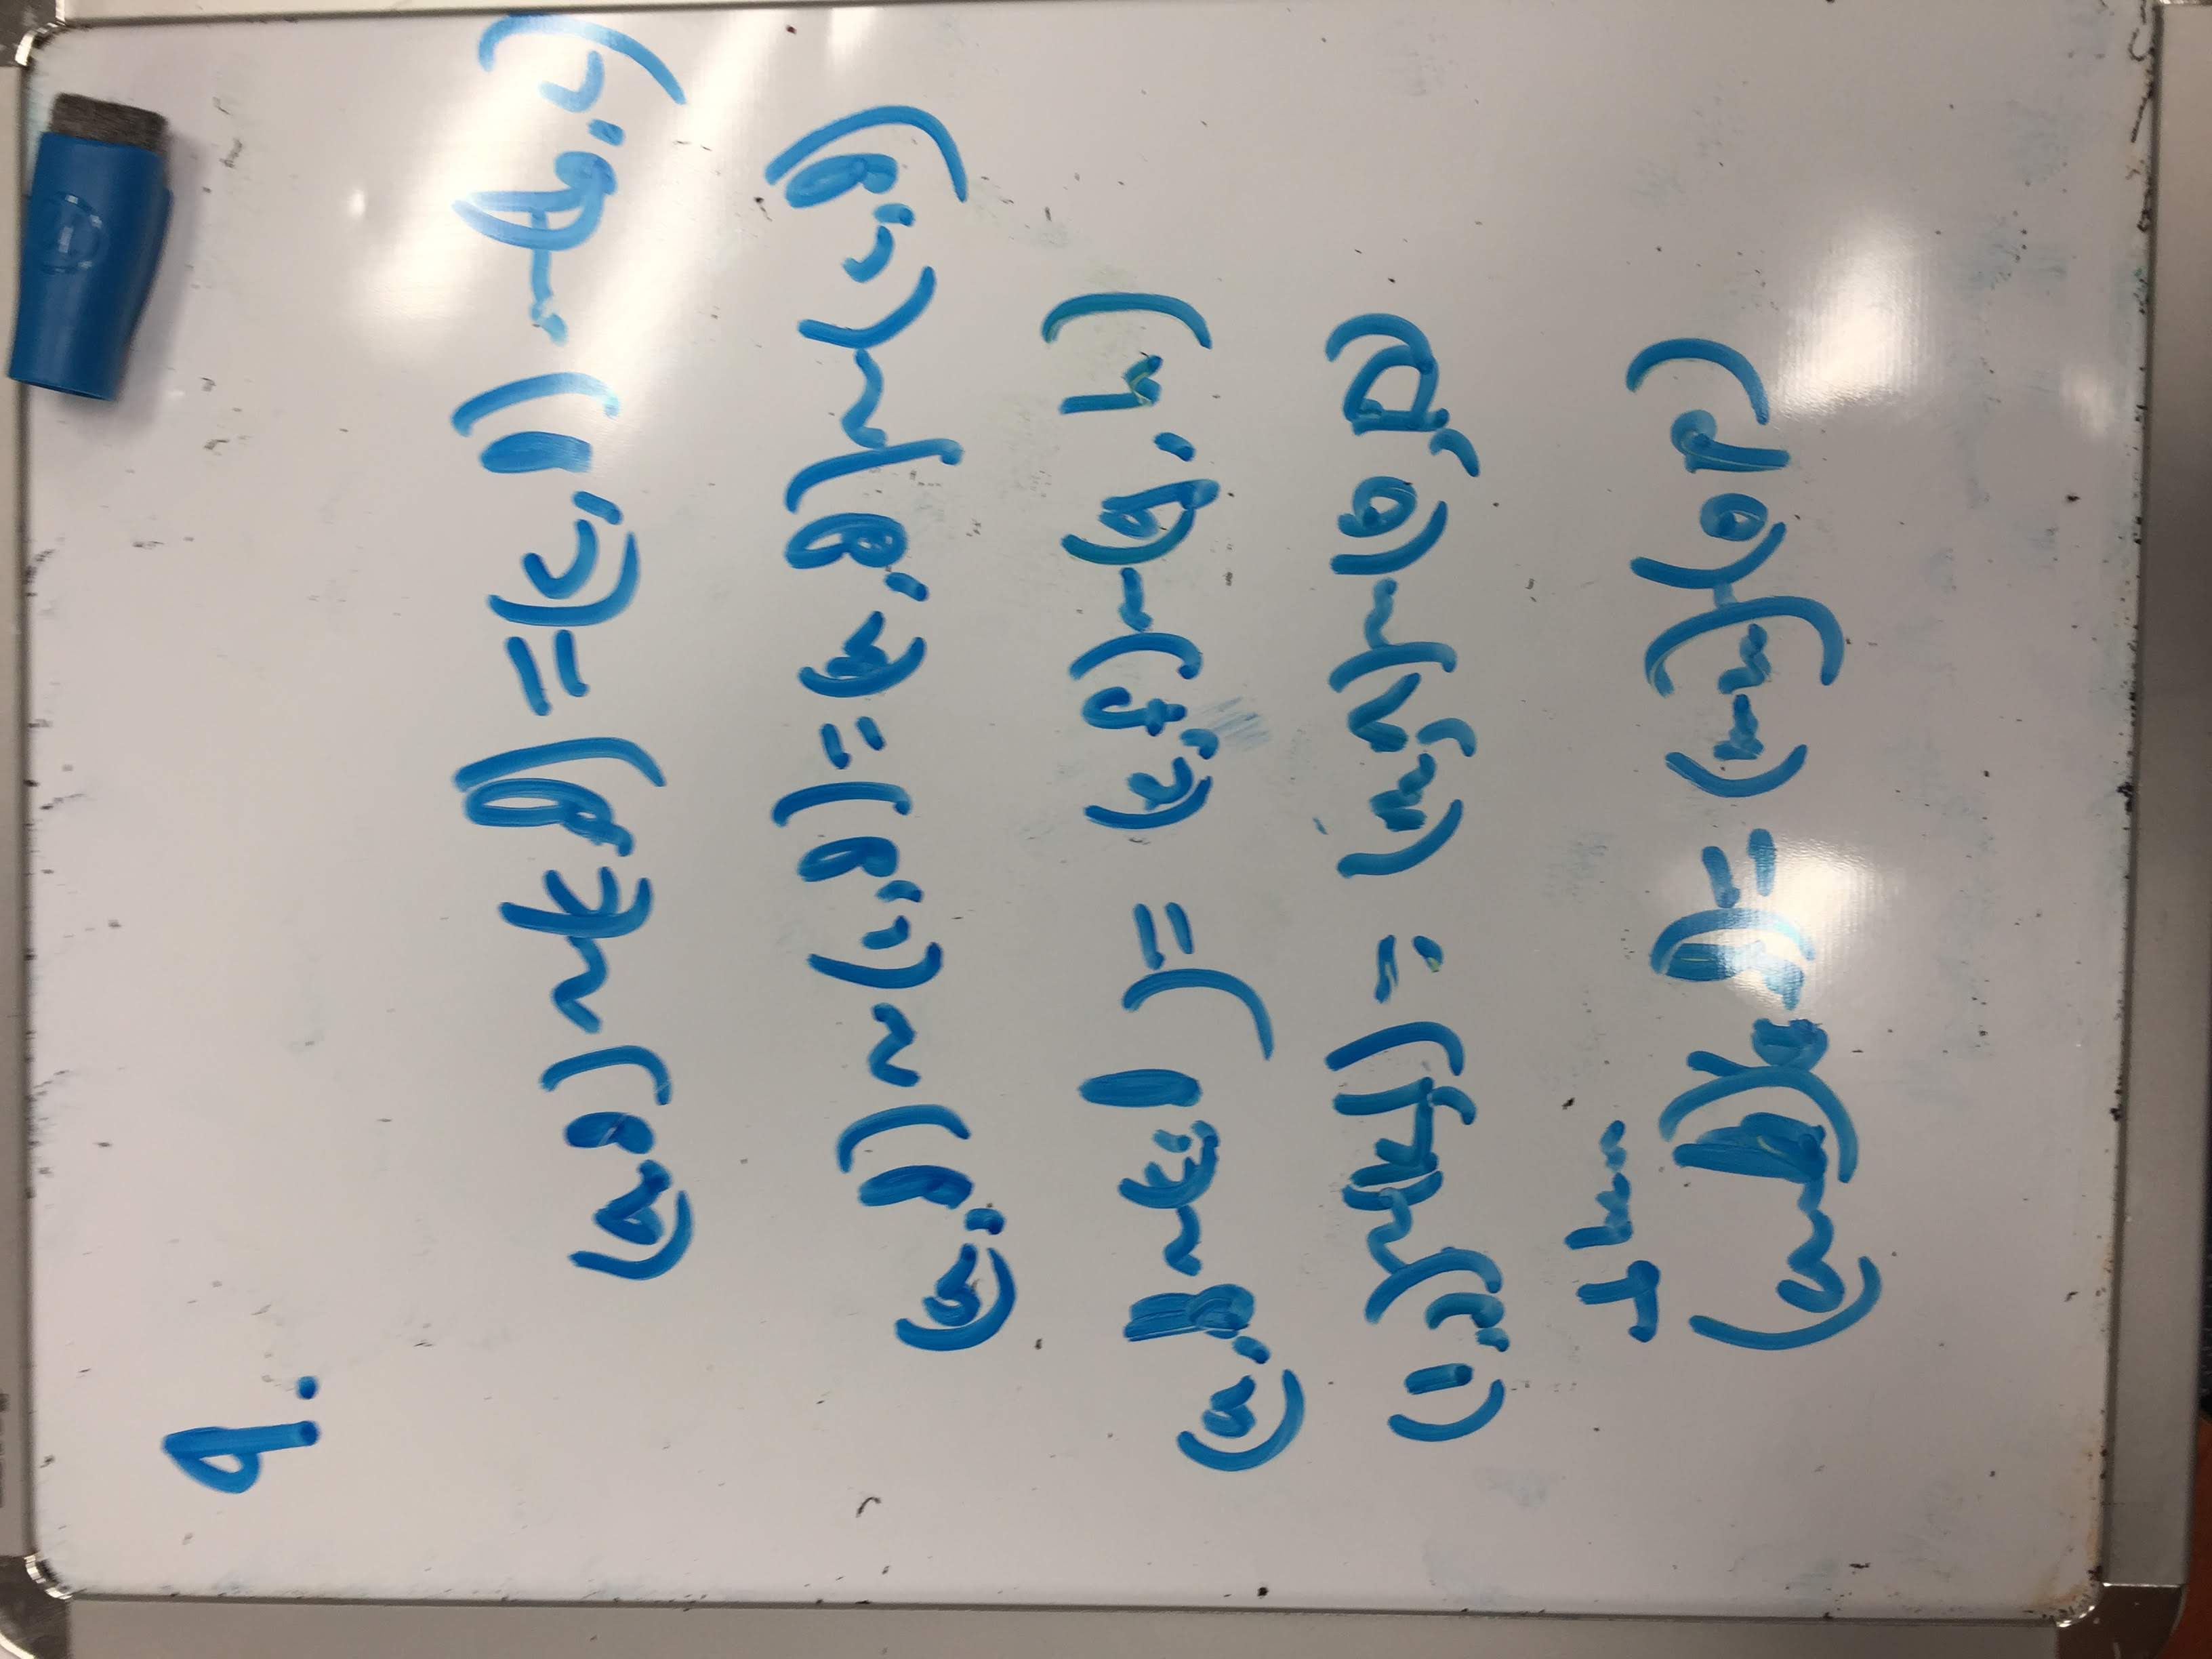 9.
(a,d)~(c,d)=(c,d)~(b,c)
(a,d)~(c,d)=(a,d)~(c,d)
(a,b~(c,d)=(e,f)~(g,h)
(1,2)~(k,l)=(m,n)~(o,p)
then
=(mn)~(op)